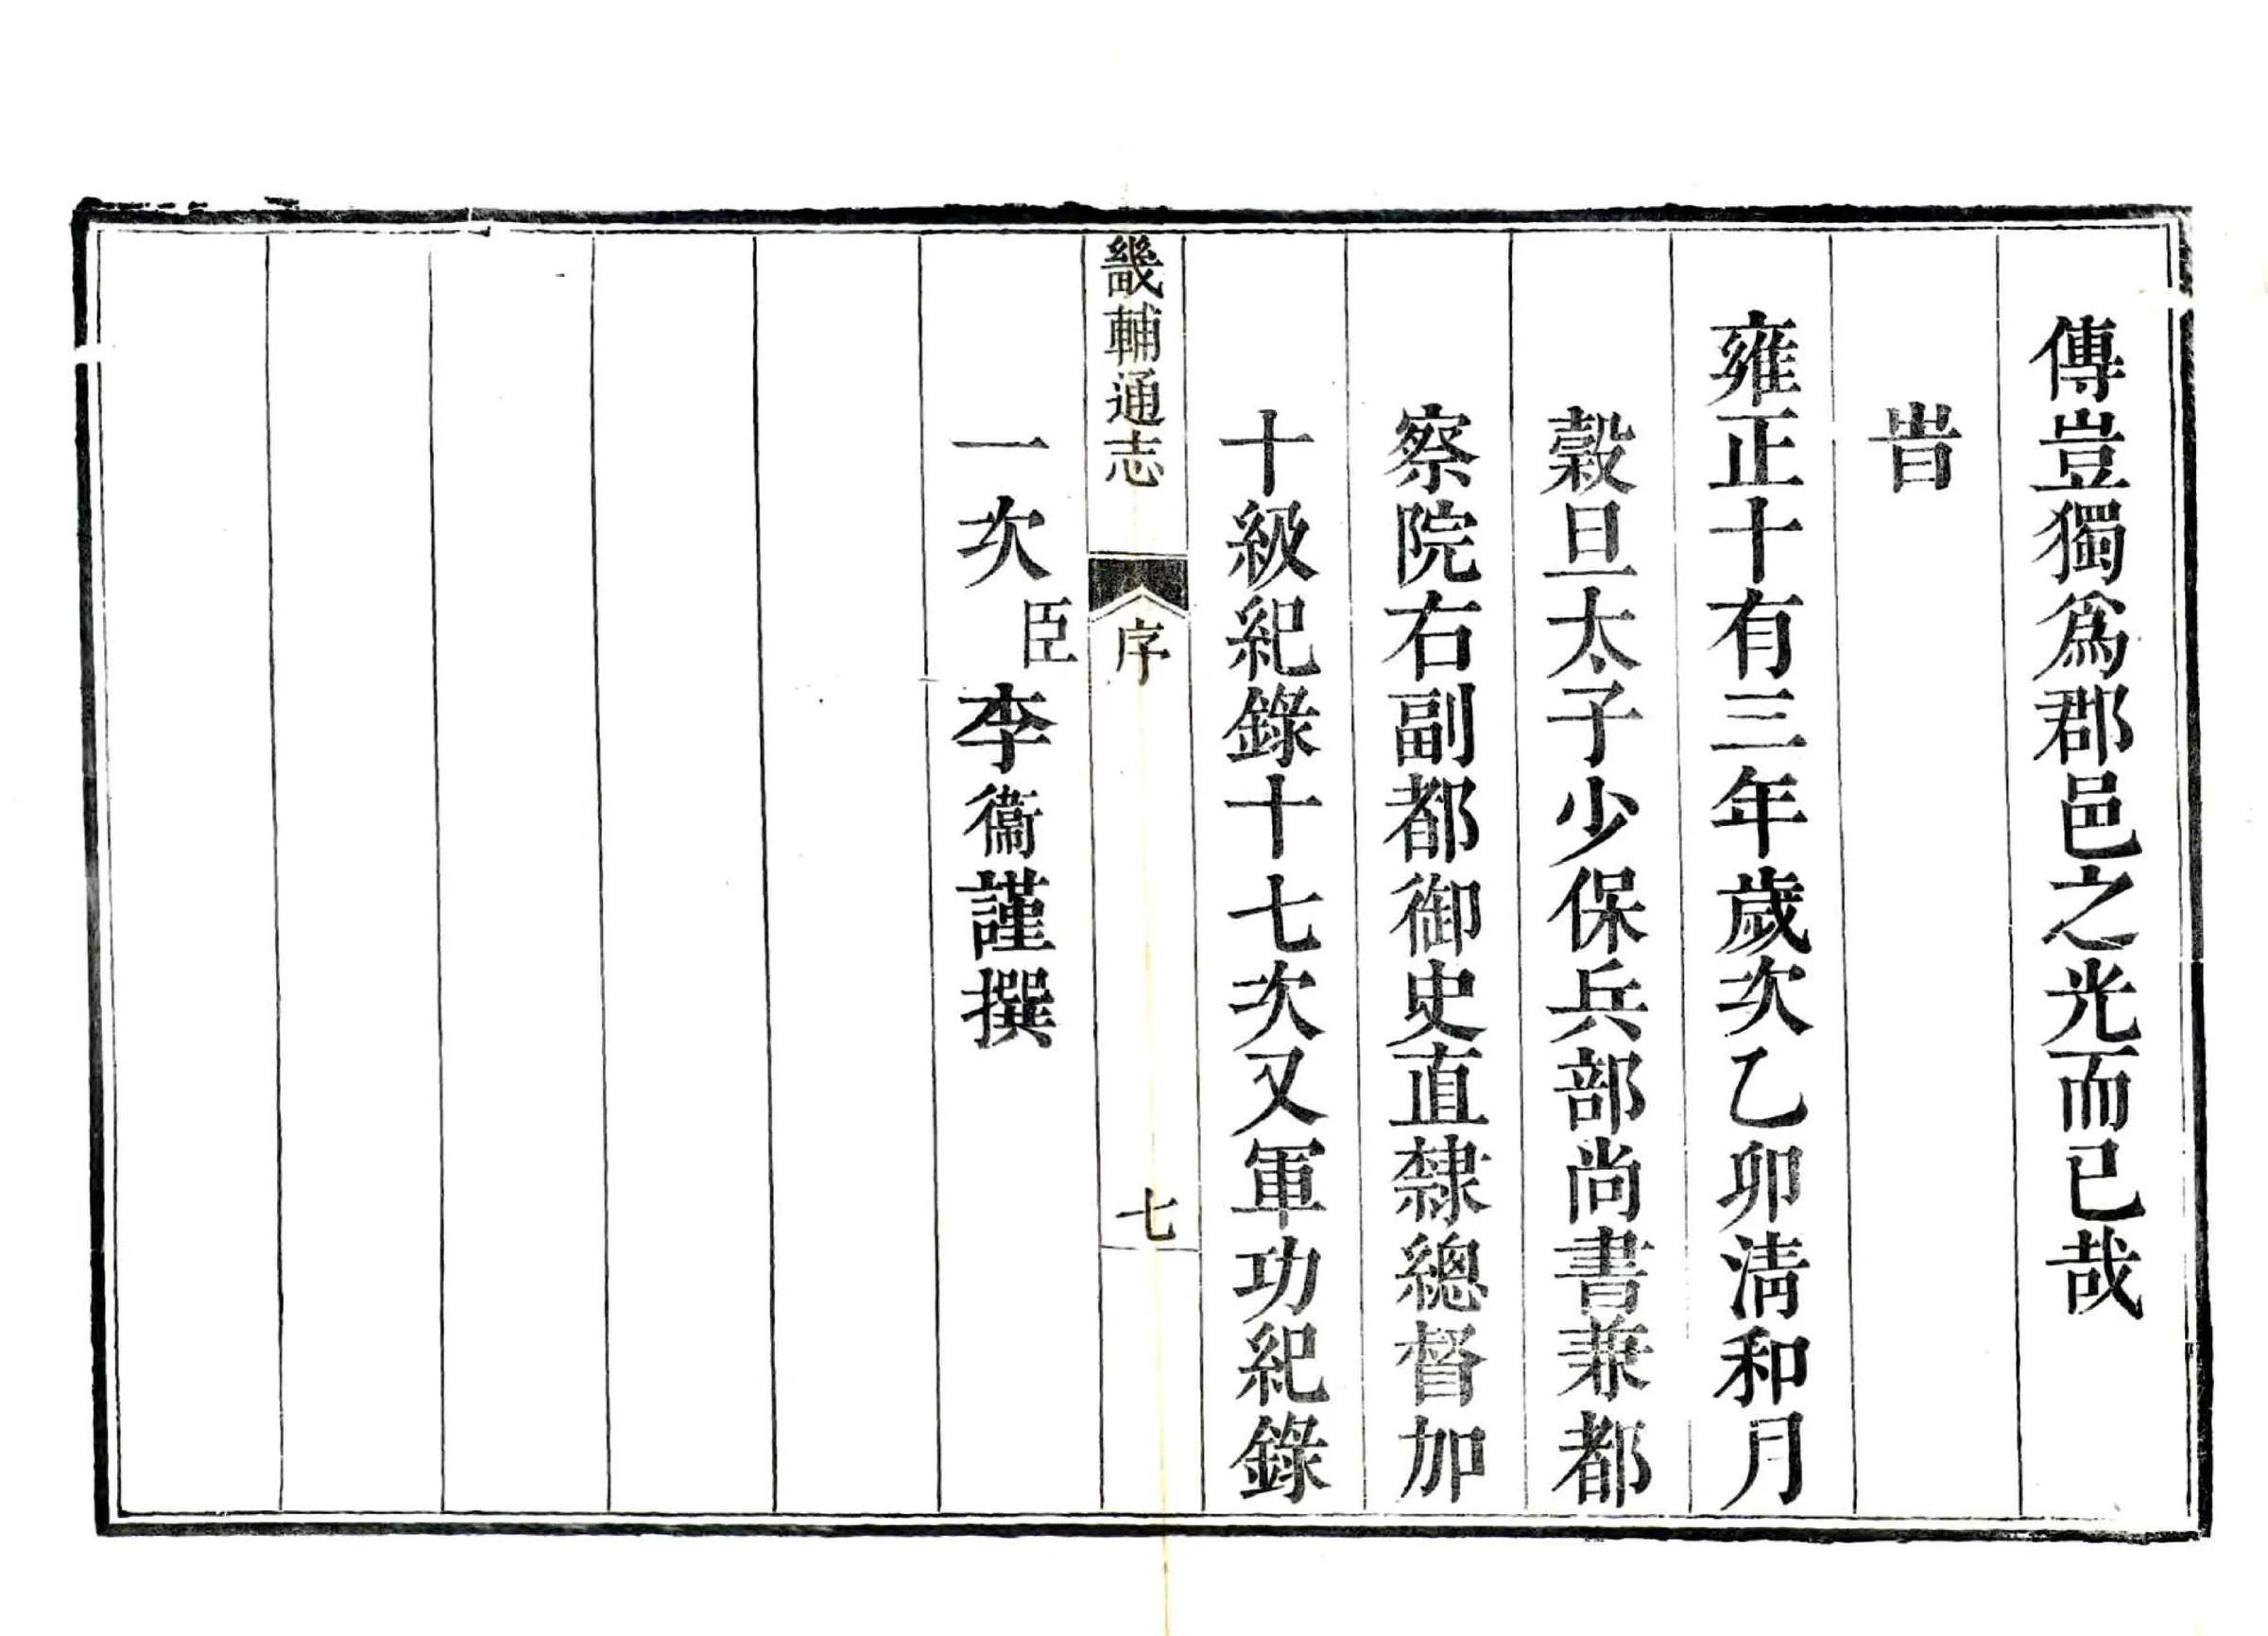 傳豈獨爲郡邑之光而已哉
旹
雍正十有三年歲次乙卯清和月
穀旦太子少保兵部尚書兼都
察院右副都御史直隸總督加
十級紀錄十七次又軍功紀錄
畿輔通志 序 七
一次臣李衞謹撰